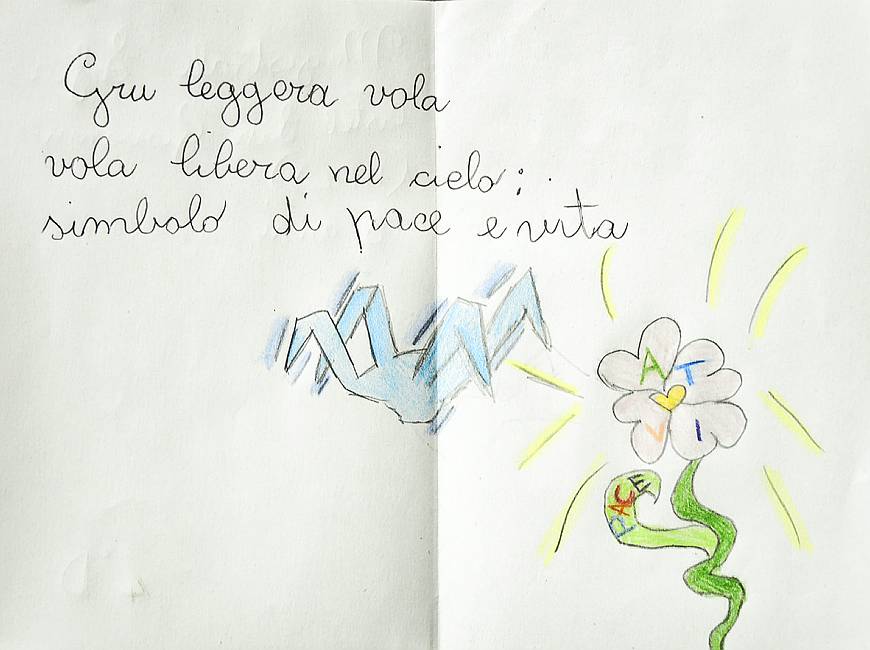 Gru leggera vola
vola libera nel cielo:
simbolo di pace e vita
A T
V I
PACE